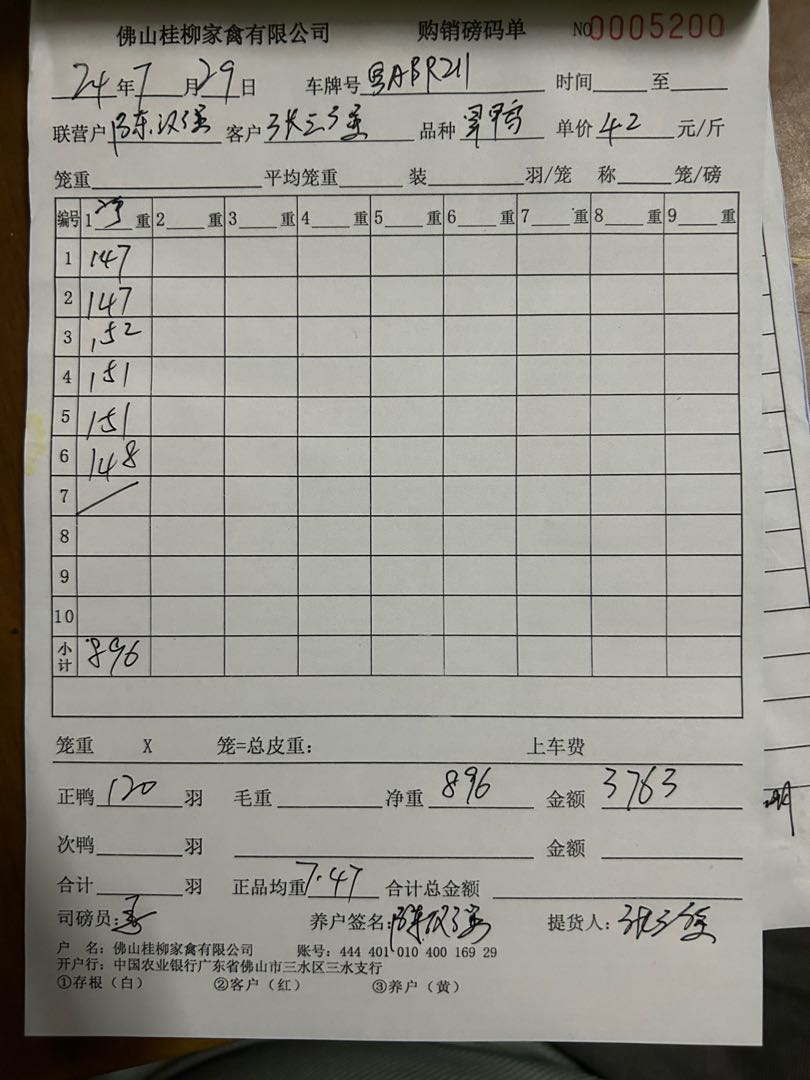 佛山桂柳家禽有限公司 购销磅码单 NO0005200
24年7月29日 车牌号 粤ABR211 时间 至
联营户 陈汉强 客户 品种 单价 42 元/斤
笼重 平均笼重 装 羽/笼 称 笼/磅
编号 1 净 重 2 重 3 重 4 重 5 重 6 重 7 重 8 重 9 重
1 147
2 147
3 152
4 151
5 151
6 148
7
8
9
10
小计 896
笼重 X 笼=总皮重: 上车费
正鸭 120 羽 毛重 净重 896 金额 3763
次鸭 羽 金额
合计 羽 正品均重 7.47 合计总金额
司磅员: 养户签名: 陈汉强 提货人:
户 名: 佛山桂柳家禽有限公司 账号: 444 401 010 400 169 29
开户行: 中国农业银行广东省佛山市三水区三水支行
①存根(白) ②客户(红) ③养户(黄)